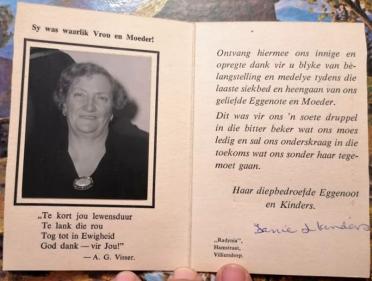 Sy was waarlik Vrou en Moeder!
„Te kort jou lewensduur
Te lank die rou
Tog tot in Ewigheid
God dank — vir Jou!"
— A. G. Visser.
Ontvang hiermee ons innige en
opregte dank vir u blyke van be-
langstelling en medelye tydens die
laaste siekbed en heengaan van ons
geliefde Eggenote en Moeder.
Dit was vir ons 'n soete druppel
in die bitter beker wat ons moes
ledig en sal ons onderskraag in die
toekoms wat ons sonder haar tege-
moet gaan.
Haar diepbedroefde Eggenoot
en Kinders.
„Radynia",
Hamstraat,
Villiersdorp.